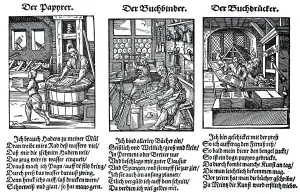 Der Papyrer.
Ich brauch Hadern zu meiner Mül
Dran treibt mirs Rad deß wassers viel/
Daß mir die zschnitn Hadern nelt/
Das zeug wirt in wasser einquelt/
Drauß mach ich Pogn/ auff dẽ filtz bring/
Durch preß das wasser darauß zwing.
Denn henck ichs auff/ laß drucken wern/
Schneweiß und glatt/ so hat mans gern.
Der Buchbinder.
Ich bind allerley Bücher ein/
Geistlich und Weltlich/ groß und klein/
In Perment oder Bretter nur
Und beschlags mit guter Clausur
Und Spangen/ und stempff sie zur zier/
Ich sie auch im anfang planier/
Etlich vergüld ich auff dem schnitt/
Da verdien ich viel geldes mit.
Der Buchdrücker.
Ich bin geschicket mit der preß
So ich aufftrag den Firniß reß/
So bald mein dienr den bengel zuckt/
So ist ein bogn papyrs gedruckt.
Da durch kombt manche Kunst an tag/
Die man leichtlich bekommen mag.
Vor zeiten hat man die bücher gschribn/
Zu Meintz die Kunst ward erstlich triebn.